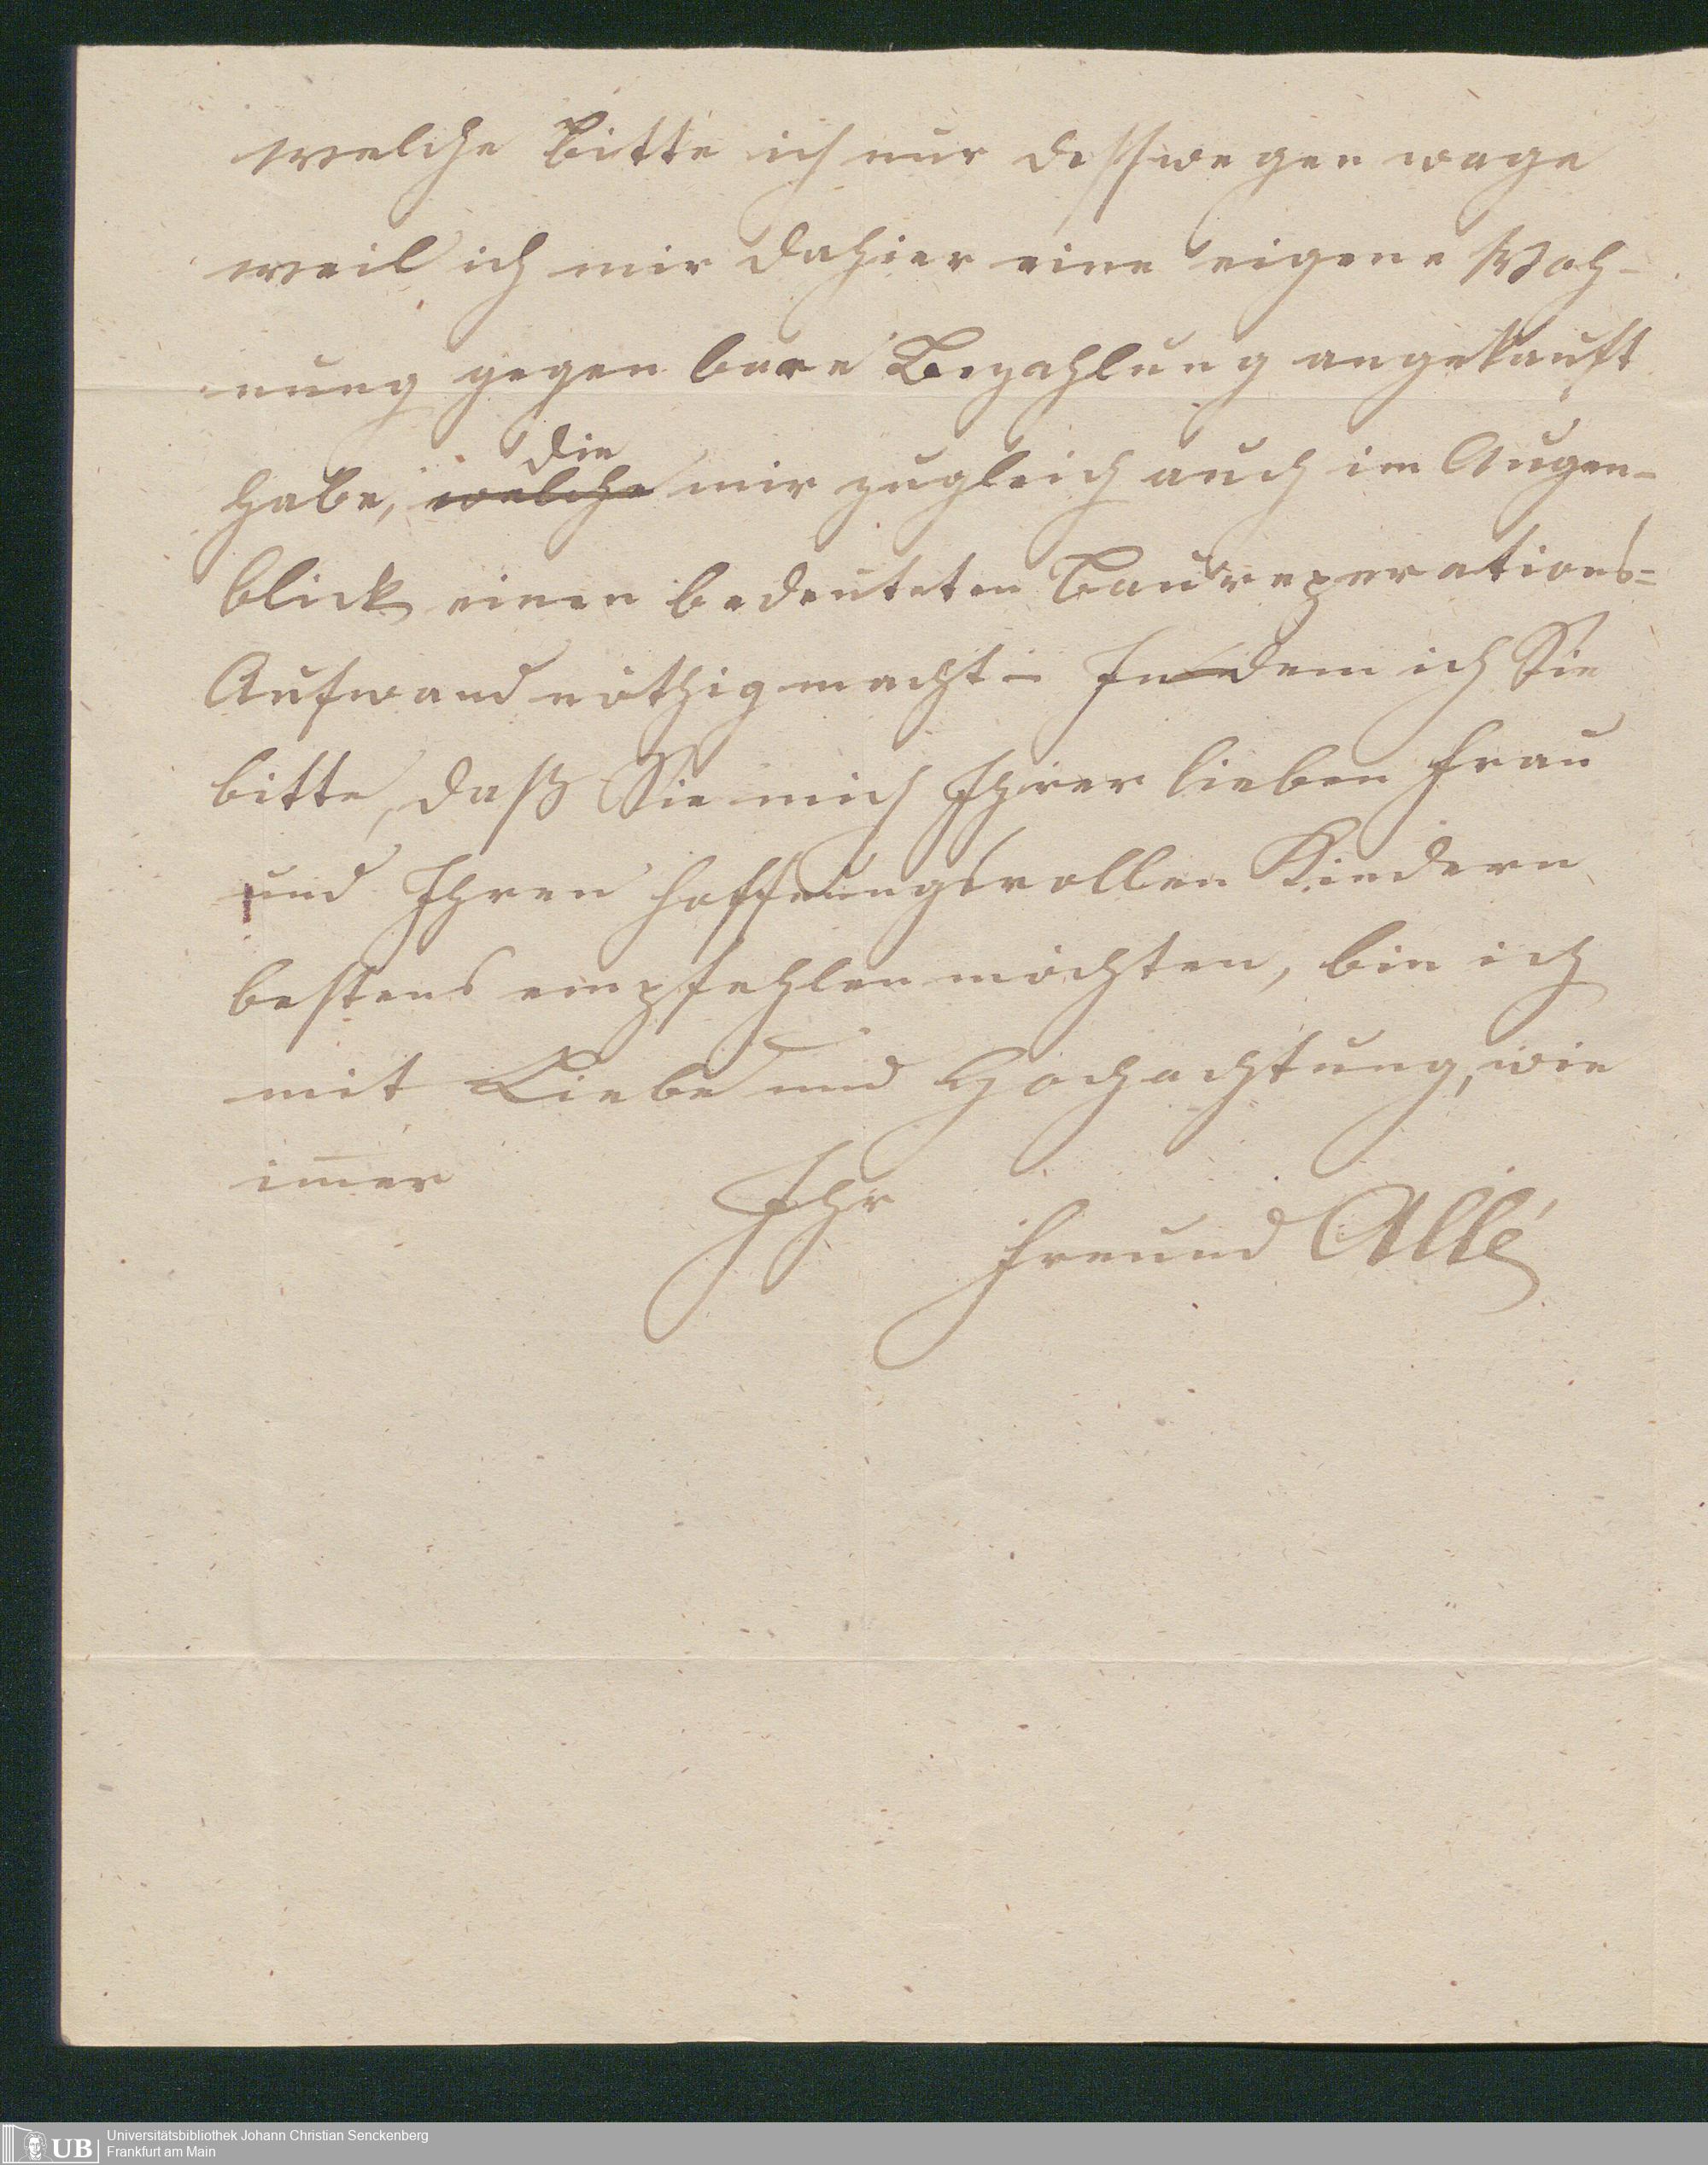 welche Bitte ich nur desswegen wage
weil ich mir dahier eine eigene Woh-
nung gegen bare Bezahlung angekauft
die
habe, welche mir zugleich auch im Augen-
blick einen bedeuteten Baureperations=
Aufwand nöthig macht – Indem ich Sie
bitte, daß Sie mich Ihrer lieben Frau
und Ihren hoffnungsvollen Kindern
bestens empfehlen möchten, bin ich
mit Liebe und Hochachtung, wie
im̅er
Ihr
Freund Allé
UB
Universitätsbibliothek Johann Christian Senckenberg
Frankfurt am Main